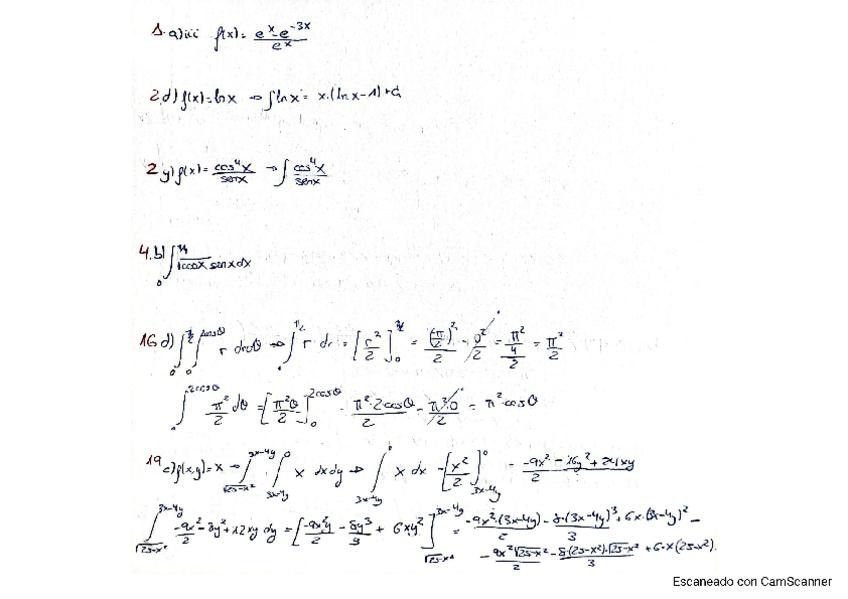 1. a) iii f(x) = (e^x - e^{-3x})/e^x
2 d) f(x) = ln x → ∫ ln x = x·(ln x - 1) + C
2 y) f(x) = cos⁴x/sen x → ∫ cos⁴x/sen x
4. b) ∫₀ √cos x sen x dx
16 d) ∫₀^{π/2} ∫₀^{2cosθ} r dr dθ → ∫ r dr = [r²/2]₀^{π/2} = (π/2)²/2 - 0²/2 = π²/4/2 = π²/2
∫₀^{2cosθ} π²/2 dθ = [π²θ/2]₀^{2cosθ} = π²·2cosθ/2 - π²·0/2 = π²·cosθ
19 c) f(x,y) = x → ∫_{√25-x²}^{3x-4y} ∫_{3x-4y}^0 x dx dy → ∫_{3x-4y}^0 x dx = [x²/2]_{3x-4y}^0 = (-9x² - 16y² + 24xy)/2
∫_{√25-x²}^{3x-4y} -9x²/2 - 8y² + 12xy dy = [-9x²y/2 - 8y³/3 + 6xy²]_{√25-x²}^{3x-4y} = -9x²·(3x-4y)/2 - 8·(3x-4y)³/3 + 6x·(3x-4y)² -
- 9x²√25-x²/2 - 8·(25-x²)·√25-x²/3 + 6·x(25-x²).
Escaneado con CamScanner